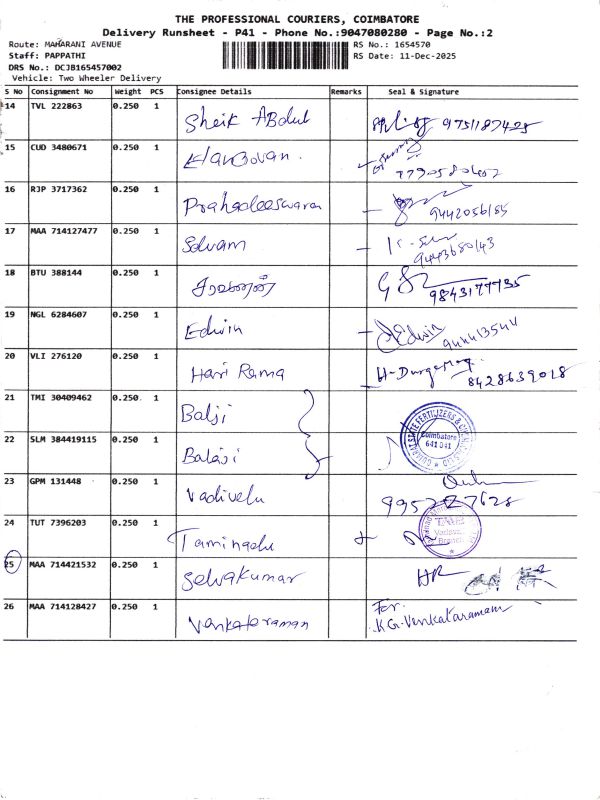 THE PROFESSIONAL COURIERS, COIMBATORE
Delivery Runsheet - P41 - Phone No.:9047080280 - Page No.:2
Route: MAHARANI AVENUE RS No.: 1654570
Staff: PAPPATHI RS Date: 11-Dec-2025
DRS No.: DCJB165457002
Vehicle: Two Wheeler Delivery
S No Consignment No Weight PCS Consignee Details Remarks Seal & Signature
14 TVL 222863 0.250 1 Sheik Abdul 9751187425
15 CUD 3480671 0.250 1 Elangovan. 7790580602
16 RJP 3717362 0.250 1 Prahadeeswaran 9442056185
17 MAA 714127477 0.250 1 Selvam 9443680143
18 BTU 388144 0.250 1 சரவணன் 9843177735
19 NGL 6284607 0.250 1 Edwin Edwin 944413544
20 VLI 276120 0.250 1 Hari Rama 8428639018
21 TMI 30409462 0.250 1 Balaji
22 SLM 384419115 0.250 1 Balaji Coimbatore 641 041
23 GPM 131448 0.250 1 Vadivelu
24 TUT 7396203 0.250 1 Taminadu
25 MAA 714421532 0.250 1 Selvakumar
26 MAA 714128427 0.250 1 Venkateraman For.
K.G. Venkataramam